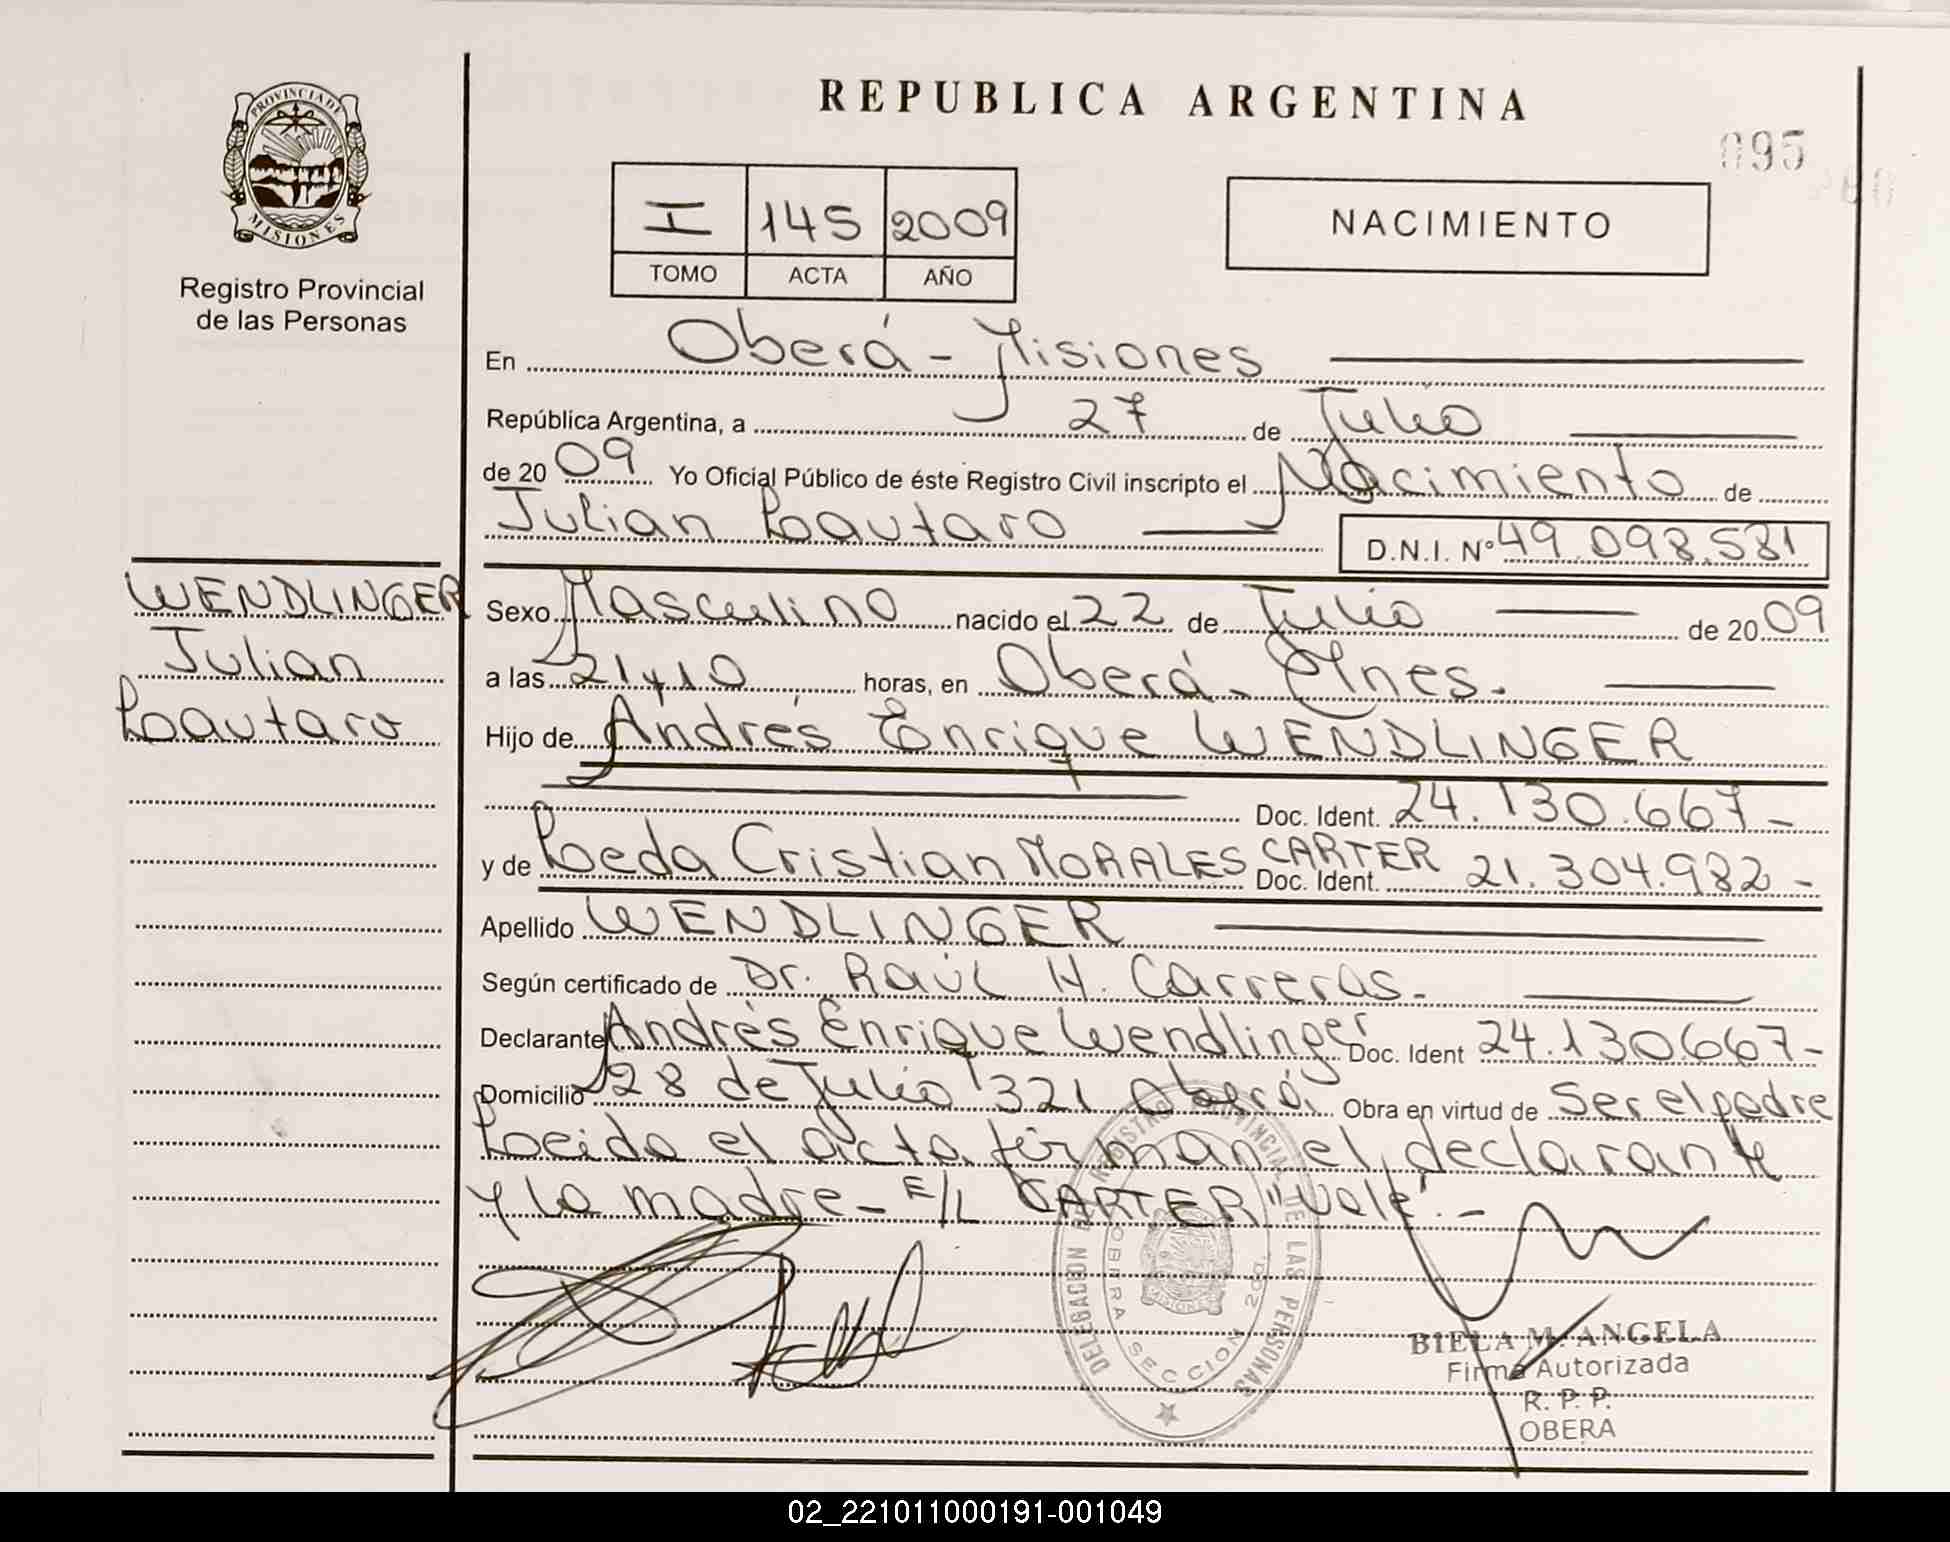 REPUBLICA ARGENTINA
095
PROVINCIA DE
MISIONES
Registro Provincial
de las Personas
I 145 2009
TOMO ACTA AÑO
NACIMIENTO
En Oberá - Misiones
República Argentina, a 27 de Julio
de 2009 Yo Oficial Público de éste Registro Civil inscripto el Nacimiento de
Julian Lautaro D.N.I. N° 49.098.531
WENDLINGER
Julian
Lautaro
Sexo Masculino nacido el 22 de Julio de 2009
a las 21y10 horas, en Oberá - Mnes.
Hijo de Andrés Enrique WENDLINGER
Doc. Ident. 24.130.667-
y de Leda Cristian MORALES CARTER Doc. Ident. 21.304.982-
Apellido WENDLINGER
Según certificado de Dr. Raúl H. Carreras.
Declarante Andrés Enrique Wendlinger Doc. Ident 24.130.667-
Domicilio 28 de Julio 1321 Oberá. Obra en virtud de Ser el padre
Leida el acta firman el declarante
y la madre - E/L CARTER "Vale". -
DELEGACION DEL REGISTRO PROVINCIAL DE LAS PERSONAS
OBERA SECCION 2da.
MISIONES
BIELA M. ANGELA
Firma Autorizada
R. P. P.
OBERA
02_221011000191-001049